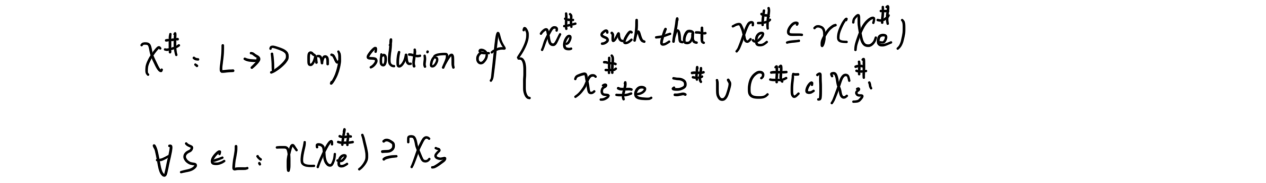 X^# : L → D any solution of { x_e^# such that x_e^# ⊆ γ(X_e^#)
x_{ξ≠e}^# ⊇^# ∪ C^#[c] X_ξ'^#
∀ξ ∈ L : γ(X_e^#) ⊇ X_ξ